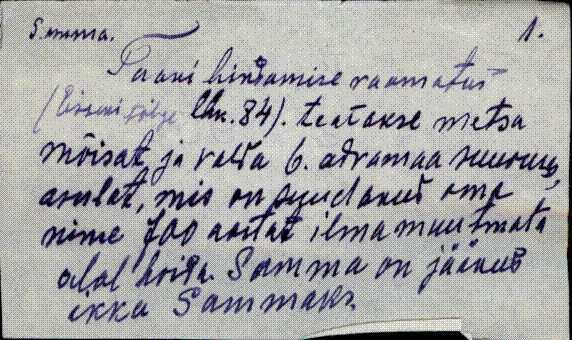 Samma. 1.
Taani hindamise raamatus
lhk. 84). teatakse metsa
mõisat, ja valda 6. adramaa suurus,
asulat, mis on suudanud oma
nime 700 aastat ilma muutmata
alal hoida. Samma on jäänud
ikka Sammaks.